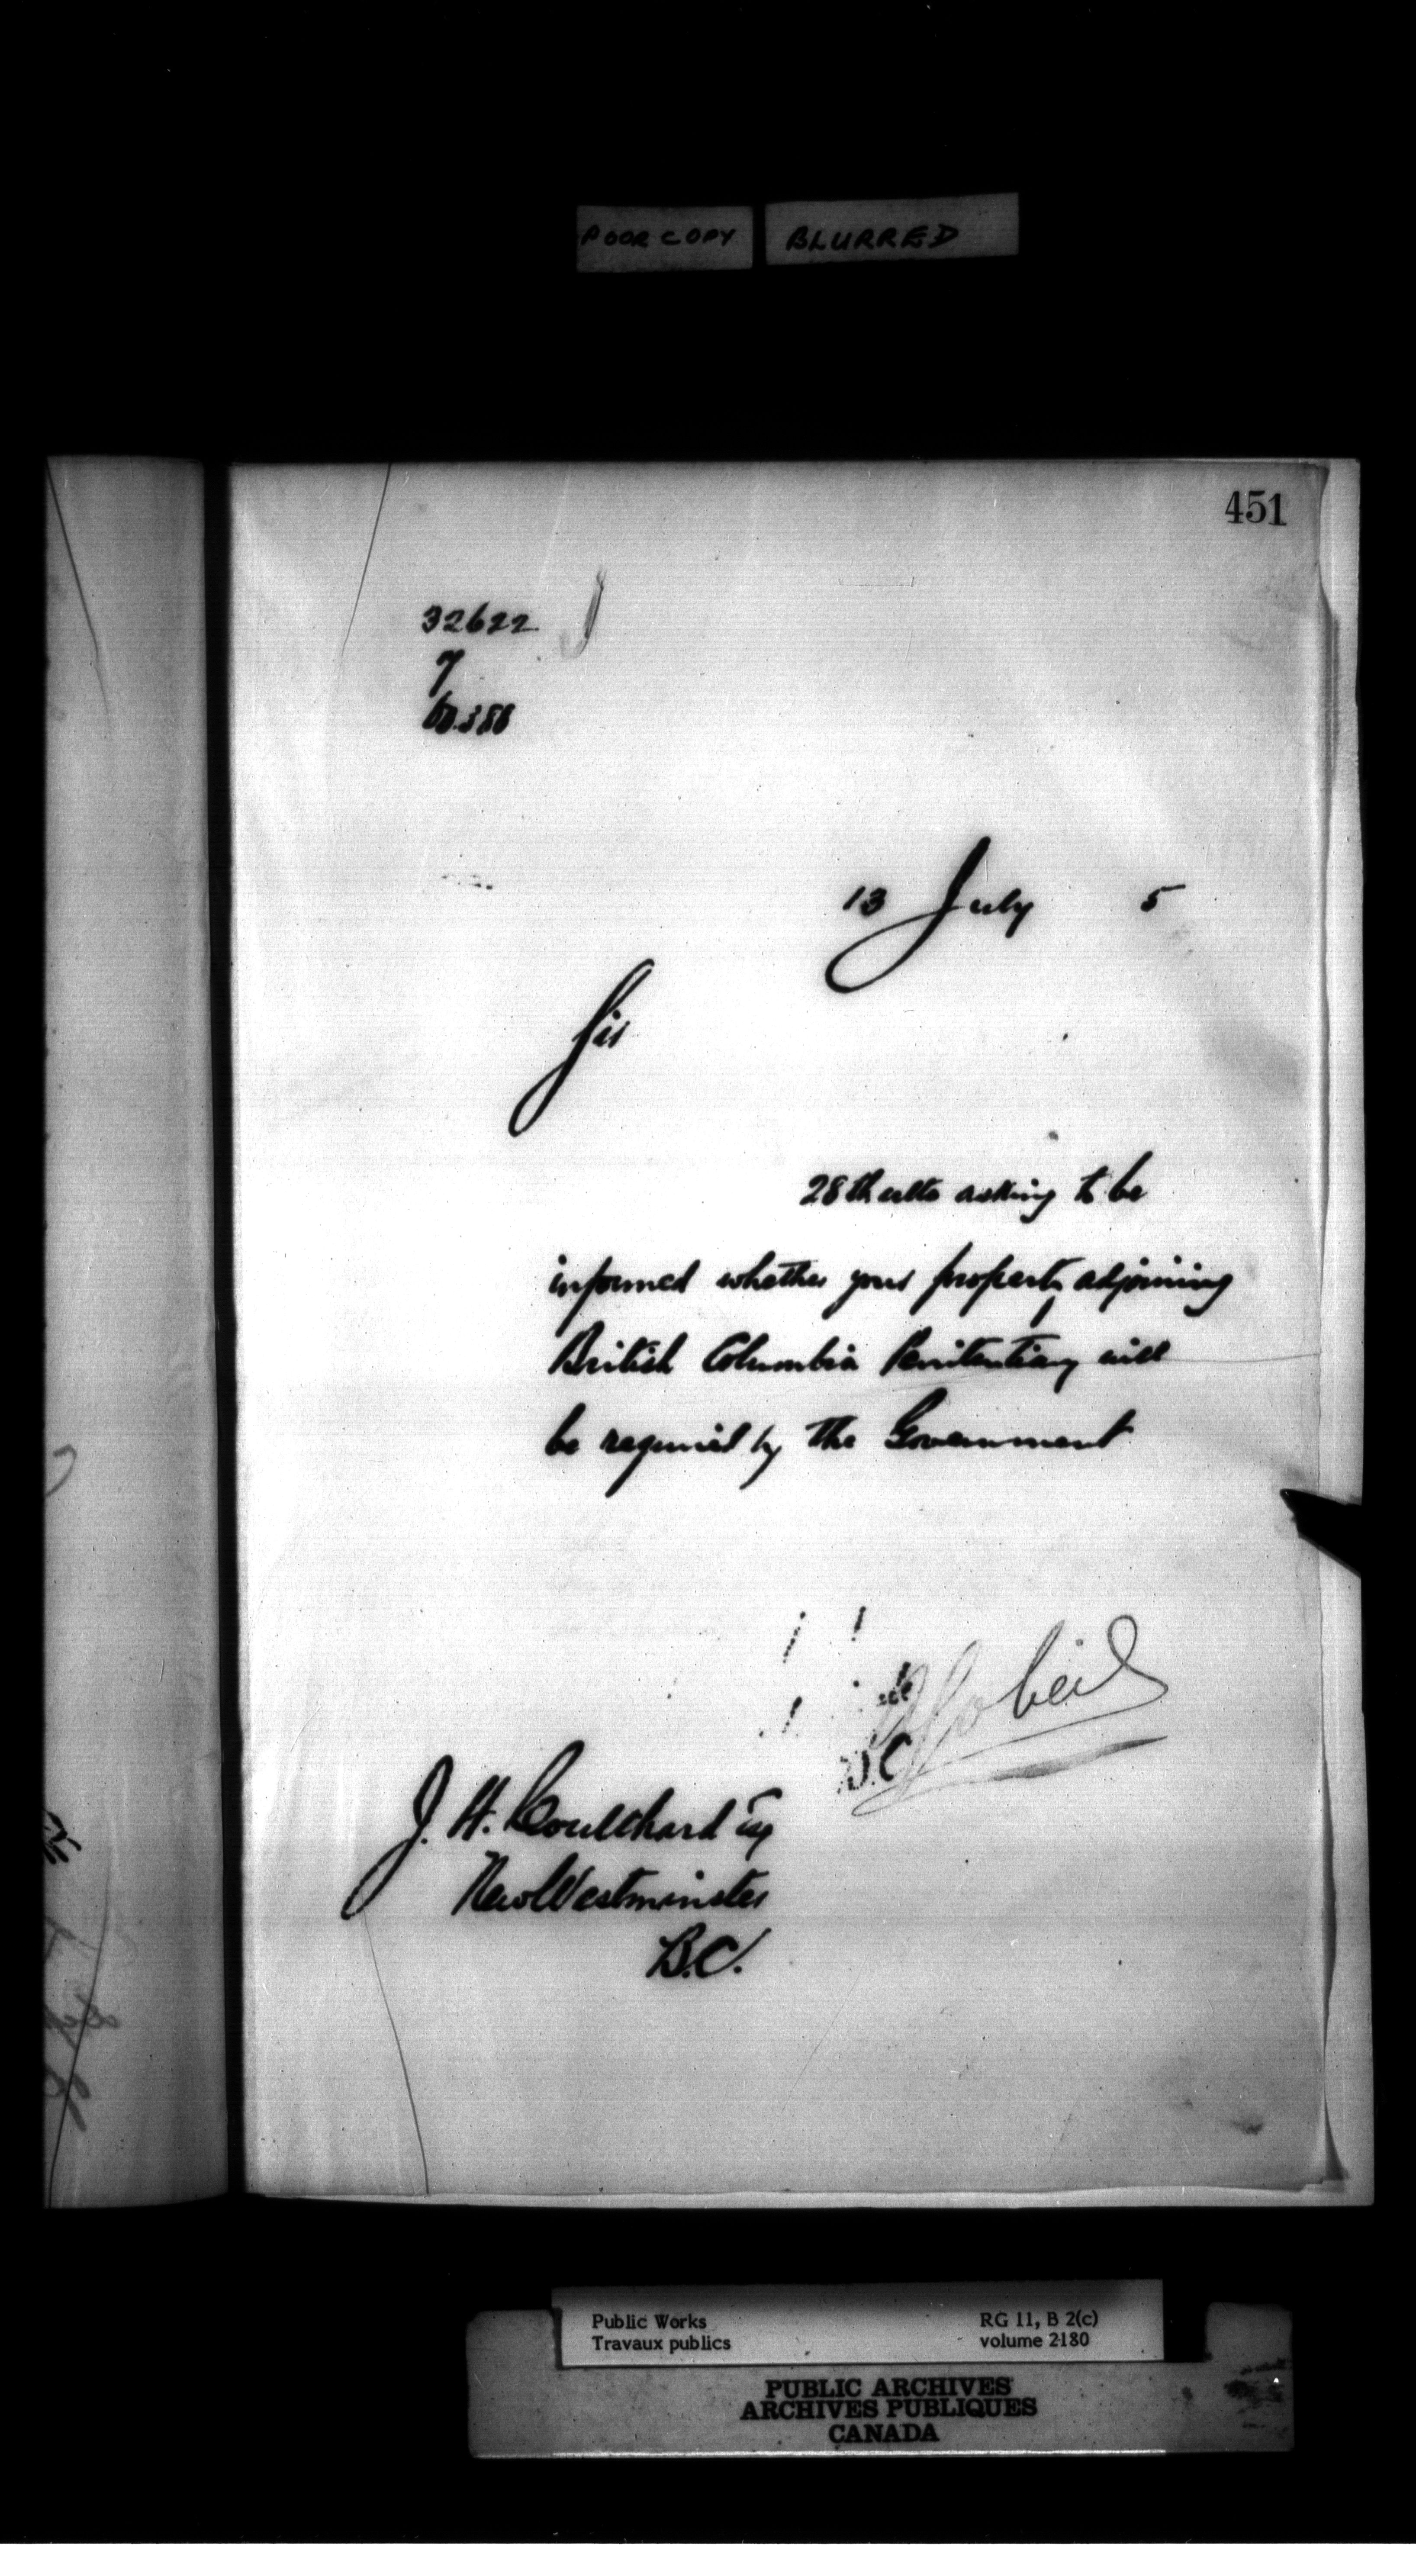 POOR COPY BLURRED
451
32622
7
13 July 5
Sir
28th ulto asking to be
informed whether your property adjoining
British Columbia Penitentiary will
be required by the Government
Gobeil
J. H. Coulthard Esq
New Westminster
B.C.
Public Works RG 11, B 2(c)
Travaux publics volume 2180
PUBLIC ARCHIVES
ARCHIVES PUBLIQUES
CANADA